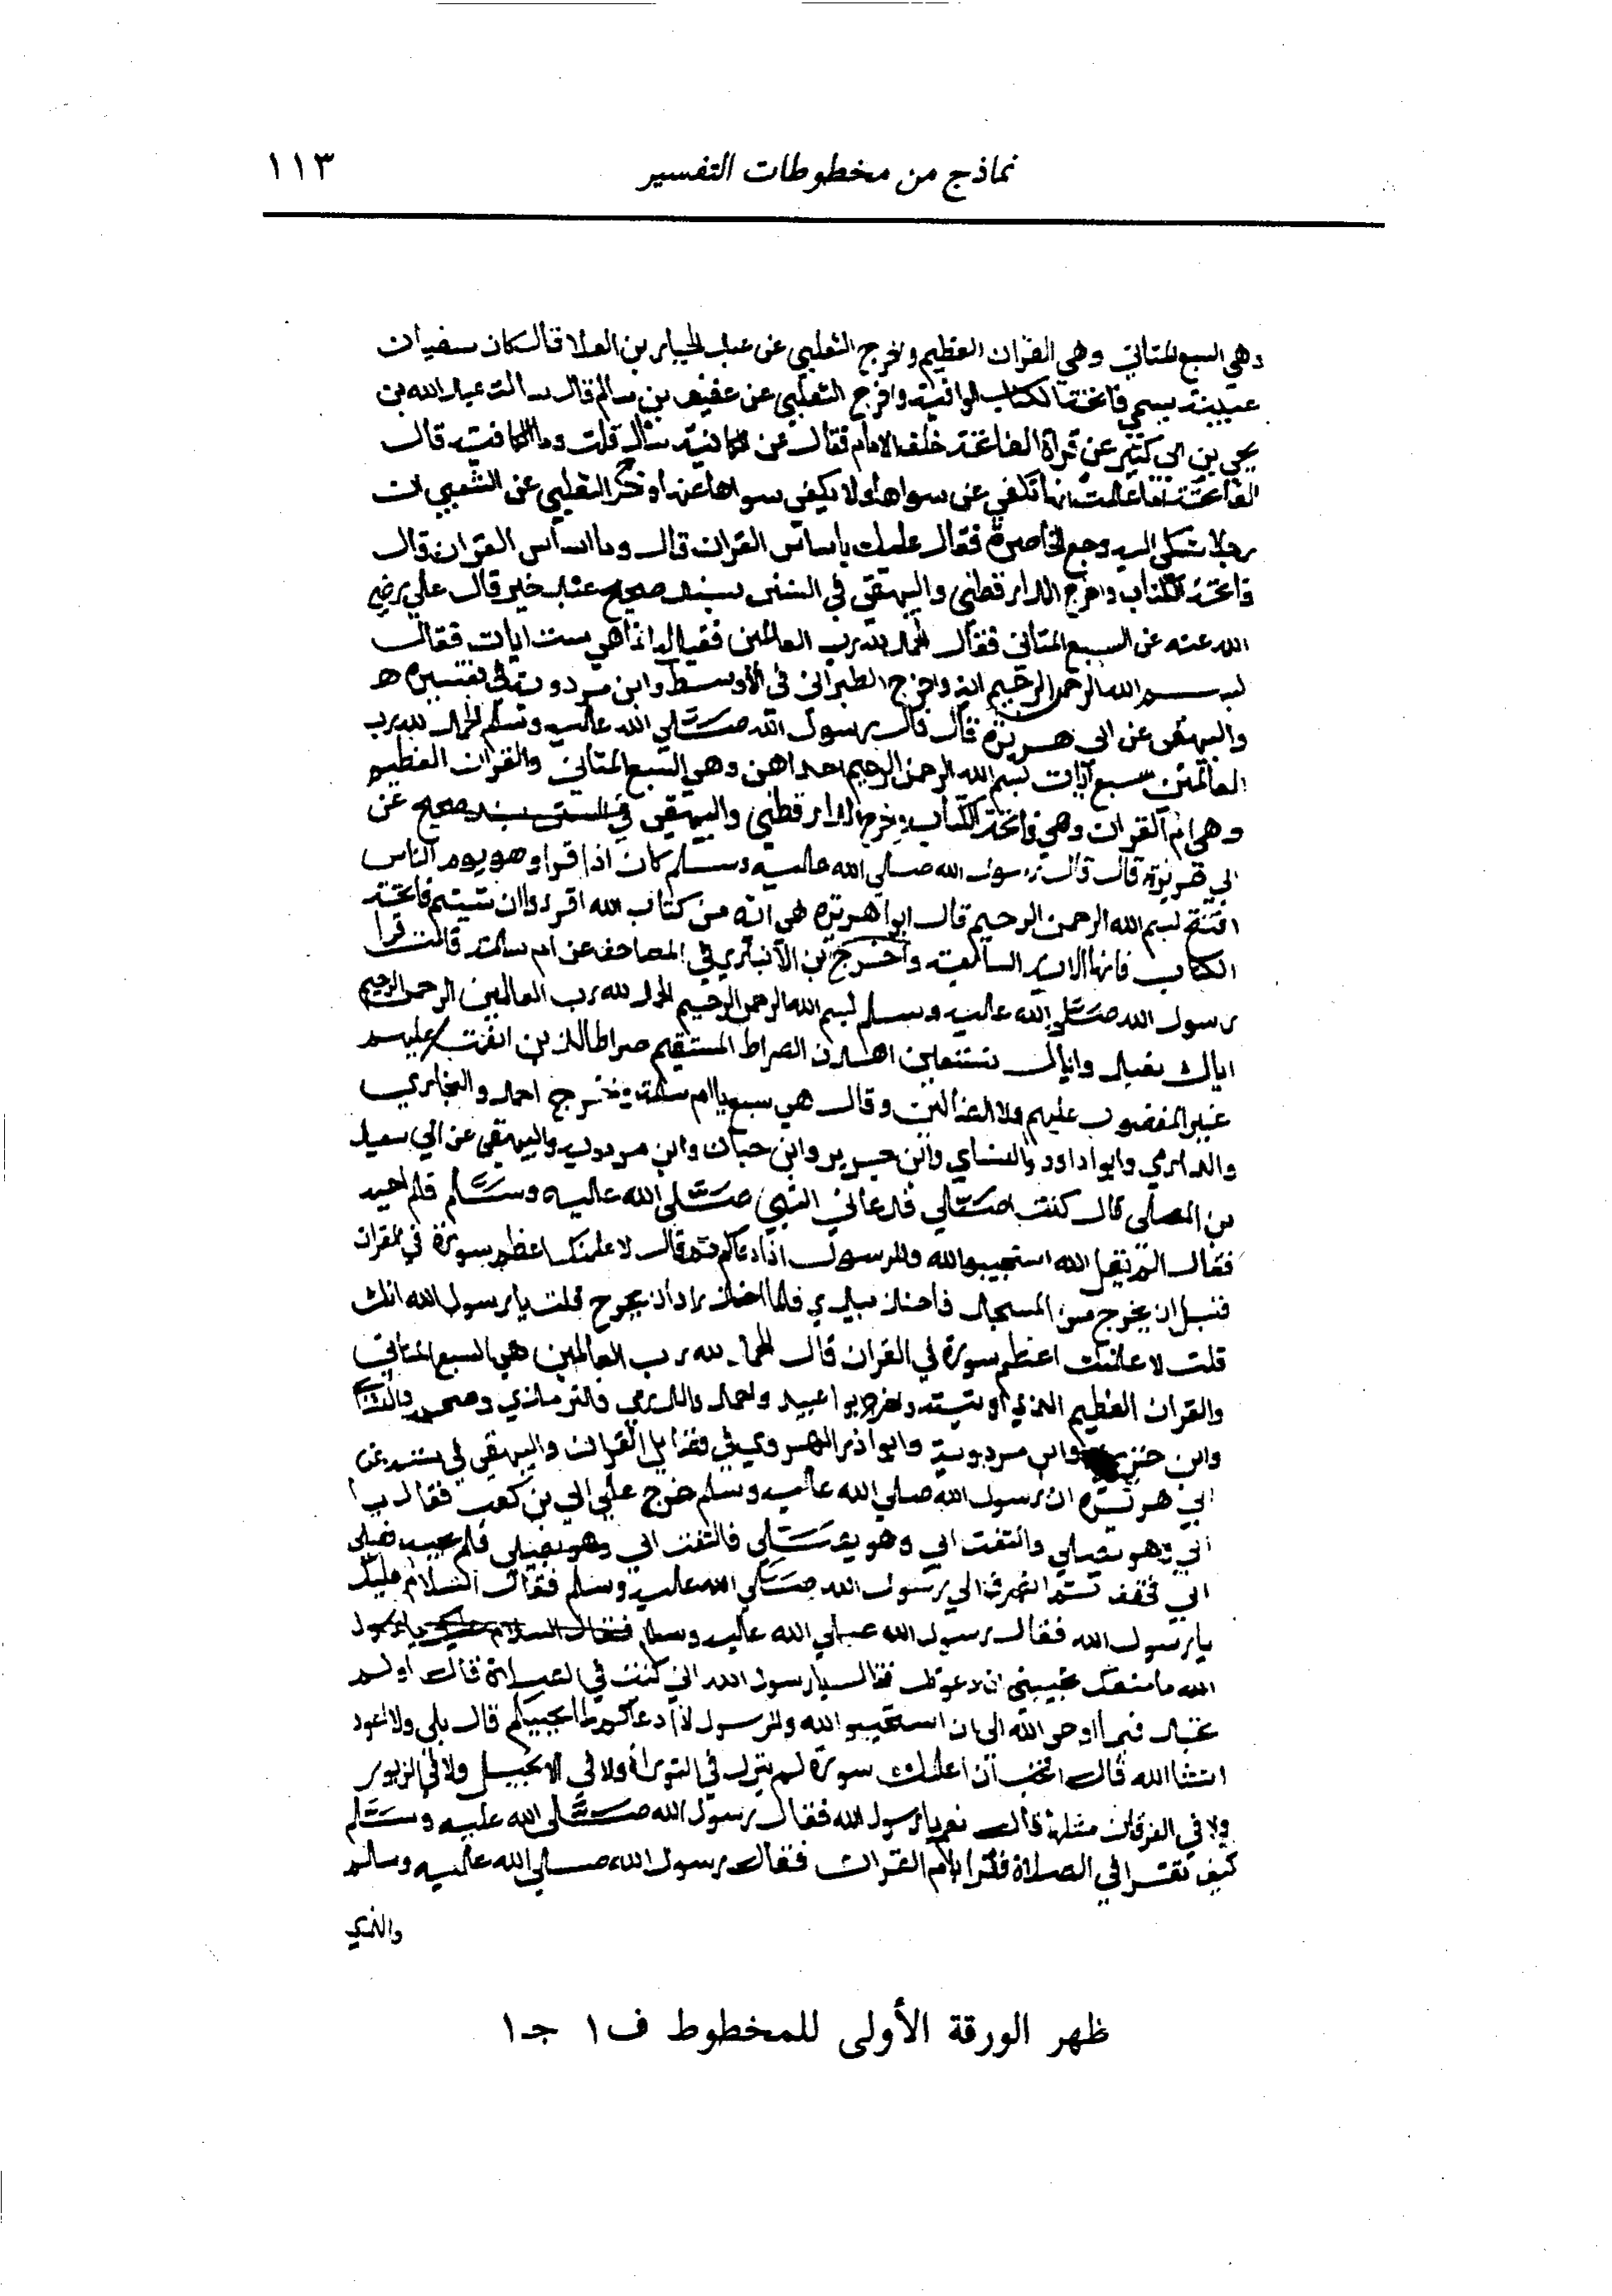 نماذج من مخطوطات التفسير ١١٣
وهي السبع المثاني وهي القران العظيم واخرج الثعلبي عن عبد الجبار بن العلا قال كان سفيان
عيينة يسمي فاتحة الكتاب الوافية واخرج الثعلبي عن عفيف بن سالم قال سالت عبد الله بن
يحي بن ابي كثير عن قراة الفاتحة خلف الامام فقال عن الكافية تسال قلت وما الكافية قال
الفاتحة اما علمت انها تكفي عن سواها ولا يكفي سواها عنها واخرج الثعلبي عن الشعبي ان
رجلا شكى اليه وجع الخاصرة فقال عليك باساس القران قال وما اساس القران قال
فاتحة الكتاب واخرج الدارقطني والبيهقي في السنن بسند صحيح عن عبد خير قال علي رضي
الله عنه عن السبع المثاني فقال الحمد لله رب العالمين فقيل له انما هي ست ايات فقال
بسم الله الرحمن الرحيم اية واخرج الطبراني في الأوسط وابن مردوية في تفسيره
والبيهقي عن ابي هريرة قال قال رسول الله صلي الله عليه وسلم الحمد لله رب
العالمين سبع آيات بسم الله الرحمن الرحيم احداهن وهي السبع المثاني والقران العظيم
وهي ام القران وهي فاتحة الكتاب واخرج الدارقطني والبيهقي في السنن بسند صحيح عن
ابي هريرة قال قال رسول الله صلي الله عليه وسلم كان اذا قرا وهو يوم الناس
افتتح بسم الله الرحمن الرحيم قال ابوا هريرة هي اية من كتاب الله اقروا ان شيتم فاتحة
الكتاب فانها الاية السابعة واخرج بن الأنباري في المصاحف عن ام سلمة قالت قرا
رسول الله صلي الله عليه وسلم بسم الله الرحمن الرحيم الحمد لله رب العالمين الرحمن الرحيم
اياك نعبد واياك نستعين اهدنا الصراط المستقيم صراط الذين انعمت عليهم
غير المغضوب عليهم ولا الضالين وقال هي سبع يا ام سلمة واخرج احمد والبخاري
والدارمي وابوا داود والنساي وابن جرير وابن حبان وابن مردوية والبيهقي عن ابي سعيد
بن المعلي قال كنت اصلي فدعاني النبي صلي الله عليه وسلم فلم اجبه
فقال الم يقل الله استجيبوا لله وللرسول اذا دعاكم ثم قال لاعلمنك اعظم سورة في القران
قبل ان يخرج من المسجد فاخذ بيدي فلما اراد ان يخرج قلت يا رسول الله انك
قلت لاعلمنك اعظم سورة في القران قال الحمد لله رب العالمين هي السبع المثاني
والقران العظيم الذي اوتيته واخرج ابوا عبيد واحمد والدارمي والترمذي وصححه والنساي
وابن خزيمة وابن مردوية وابوا ذر الهروي في فضايل القران والبيهقي في سننه عن
ابي هريرة ان رسول الله صلي الله عليه وسلم خرج علي ابي بن كعب فقال يا
ابي وهو يصلي والتفت ابي وهو يصلي فالتفت ابي وهو يصلي فلم يجبه فصلي
ابي فخفف ثم انصرف الي رسول الله صلي الله عليه وسلم فقال السلام عليك
يا رسول الله فقال رسول الله صلي الله عليه وسلم فقال السلام عليك يا رسول
الله ما منعك تجيبني ان دعوتك فقال يا رسول الله اني كنت في الصلاة قال اولم
تجد فيما اوحي الله الي ان استجيبوا لله وللرسول اذا دعاكم لما يحييكم قال بلي ولا اعود
انشا الله قال اتحب ان اعلمك سورة لم ينزل في التوراة ولا في الانجيل ولا في الزبور
ولا في الفرقان مثلها قال نعم يا رسول الله فقال رسول الله صلي الله عليه وسلم
كيف تقرا في الصلاة فقرا بام القران فقال رسول الله صلي الله عليه وسلم
والذي
ظهر الورقة الأولى للمخطوط ف١ جـ١